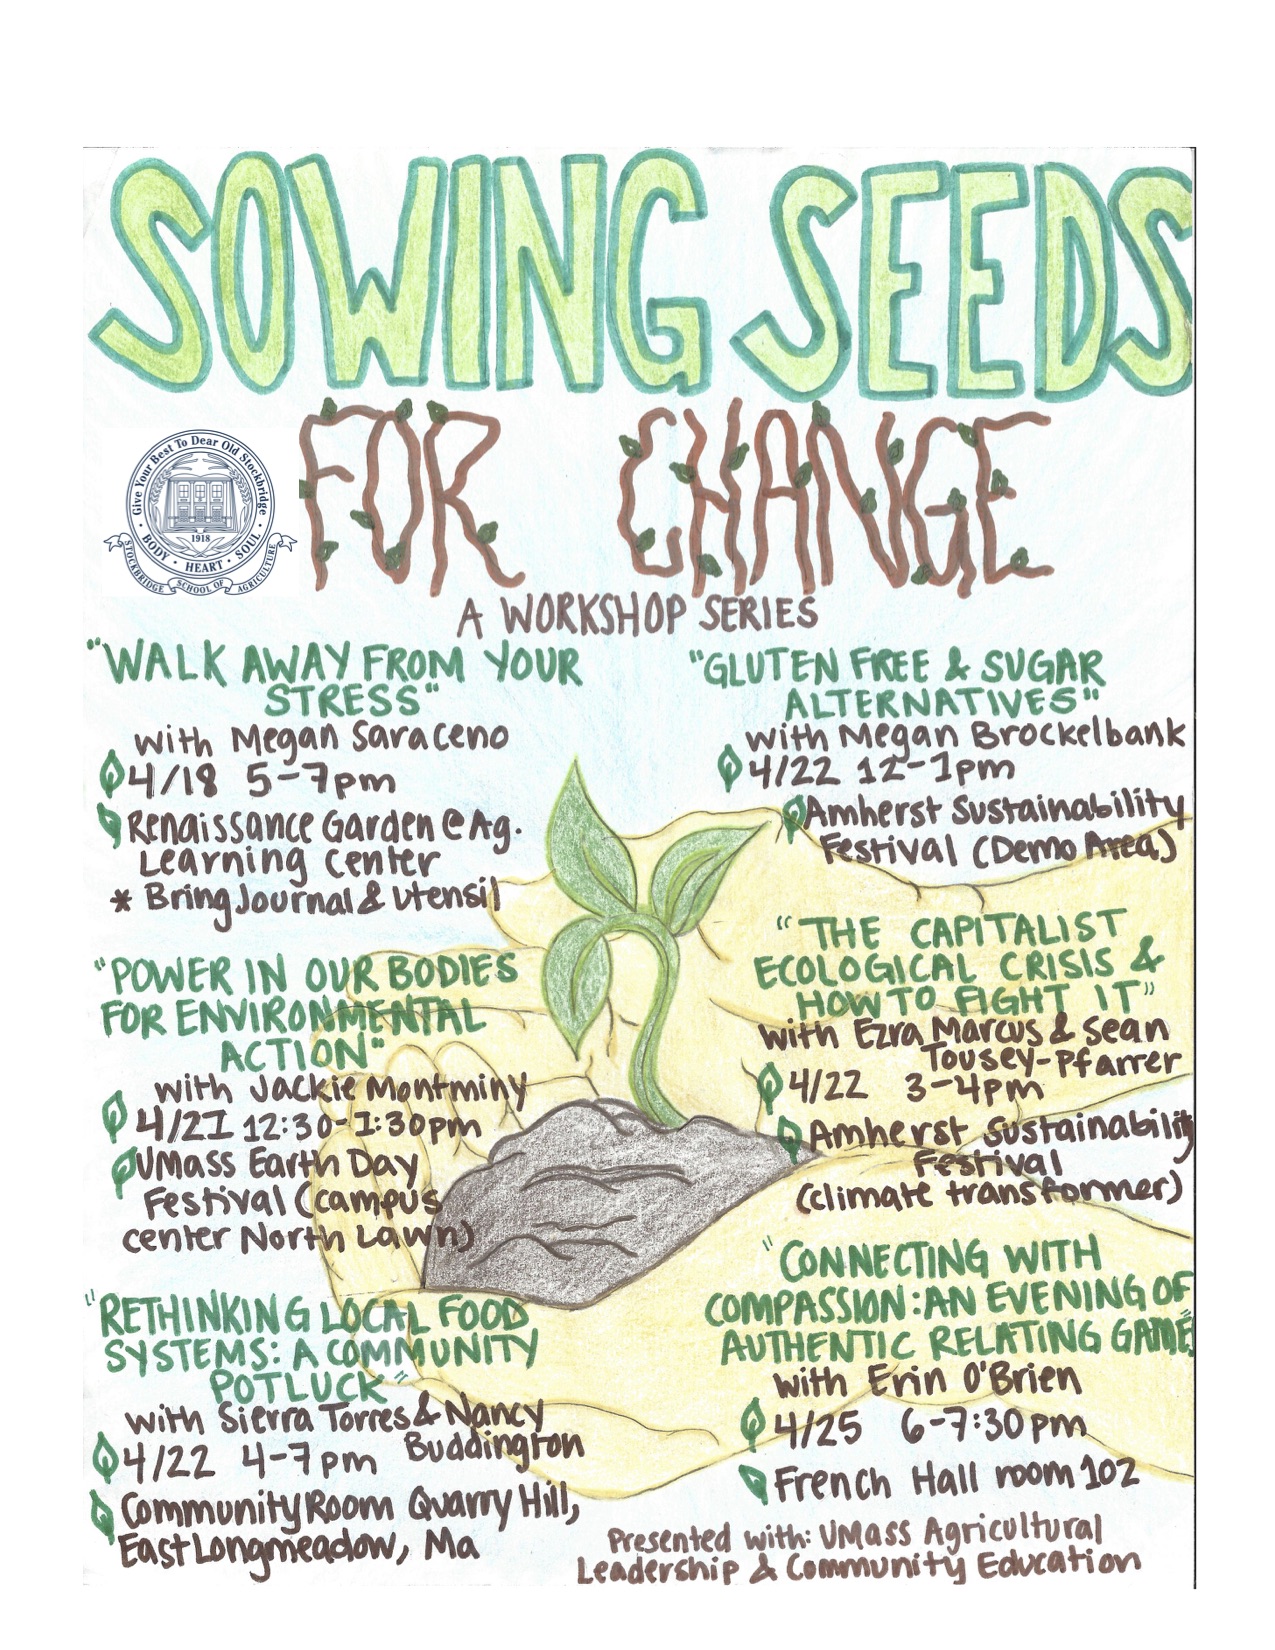 SOWING SEEDS
FOR CHANGE
A WORKSHOP SERIES
Give Your Best To Dear Old Stockbridge
1918
BODY • HEART • SOUL
STOCKBRIDGE SCHOOL OF AGRICULTURE
"WALK AWAY FROM YOUR
STRESS"
with Megan Saraceno
4/18 5-7pm
Renaissance Garden @ Ag.
Learning Center
* Bring Journal & Utensil
"POWER IN OUR BODIES
FOR ENVIRONMENTAL
ACTION"
with Jackie Montminy
4/21 12:30-1:30pm
UMass Earth Day
Festival (campus
center North Lawn)
"RETHINKING LOCAL FOOD
SYSTEMS: A COMMUNITY
POTLUCK"
with Sierra Torres & Nancy
Buddington
4/22 4-7pm
Community Room Quarry Hill,
East Longmeadow, Ma
"GLUTEN FREE & SUGAR
ALTERNATIVES"
with Megan Brockelbank
4/22 12-1pm
Amherst Sustainability
Festival (Demo Area)
"THE CAPITALIST
ECOLOGICAL CRISIS &
HOW TO FIGHT IT"
with Ezra Marcus & Sean
Tousey-Pfarrer
4/22 3-4pm
Amherst Sustainability
Festival
(climate transformer)
"CONNECTING WITH
COMPASSION: AN EVENING OF
AUTHENTIC RELATING GAMES"
with Erin O'Brien
4/25 6-7:30pm
French Hall room 102
Presented with: UMass Agricultural
Leadership & Community Education